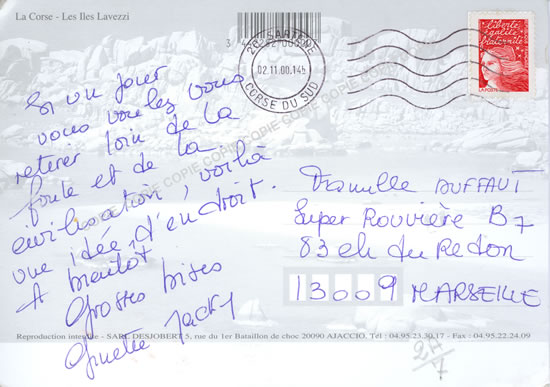 La Corse - Les Iles Lavezzi
Si un jour
vous voulez vous
retirer loin de la
foule et de la
civilisation, voilà
une idée d'endroit.
A bientôt
Grosses bises
Ginette Jacky
20 SARTENE
02.11.00.14H
CORSE DU SUD
liberté
égalité
fraternité
LA POSTE
COPIE COPIE COPIE COPIE COPIE COPIE COPIE
Famille BUFFAUT
Super Rouvière B7
83 ch du Redon
13009 MARSEILLE
Reproduction interdite - SARL DESJOBERT 5, rue du 1er Bataillon de choc 20090 AJACCIO, Tél : 04.95.23.30.17 - Fax : 04.95.22.24.09